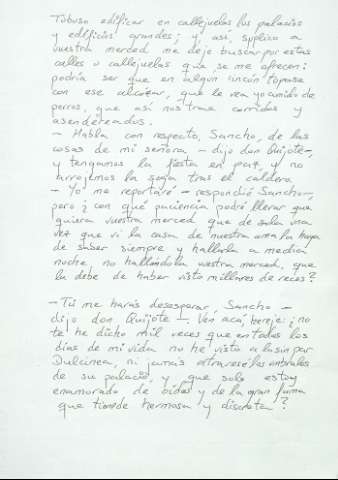 Toboso edificar en callejuelas los palacios
y edificios grandes; y así, suplico a
vuestra merced me deje buscar por estas
calles o callejuelas que se me ofrecen:
podría ser que en algún rincón topase
con ese alcázar, que le vea yo comido de
perros, que así nos trae corridos y
asendereados.
– Habla con respeto, Sancho, de las
cosas de mi señora – dijo don Quijote –,
y tengamos la fiesta en paz, y no
arrojemos la soga tras el caldero.
– Yo me reportaré – respondió Sancho –,
pero ¿con qué paciencia podré llevar que
quiera vuestra merced que de sola una
vez que vi la casa de nuestra ama la haya
de saber siempre y hallarla a media
noche, no hallándola vuestra merced, que
la debe de haber visto millares de veces?
– Tú me harás desesperar, Sancho –
dijo don Quijote –. Ven acá, hereje: ¿no
te he dicho mil veces que en todos los
días de mi vida no he visto a la sin par
Dulcinea, ni jamás atravesé los umbrales
de su palacio, y que solo estoy
enamorado de oídas y de la gran fama
que tiene de hermosa y discreta?